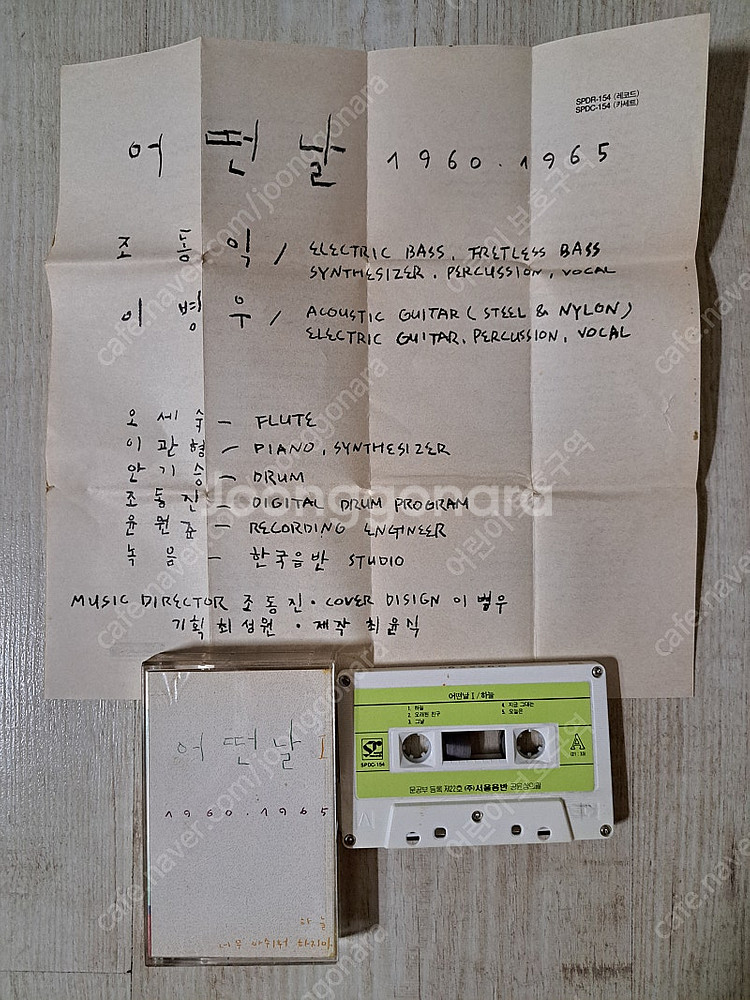 SPDR-154 (레코드)
SPDC-154 (카세트)
어떤날 1960.1965
조동익 / ELECTRIC BASS, FRETLESS BASS
SYNTHESIZER, PERCUSSION, VOCAL
이병우 / ACOUSTIC GUITAR (STEEL & NYLON)
ELECTRIC GUITAR, PERCUSSION, VOCAL
오세숙 - FLUTE
이관형 - PIANO, SYNTHESIZER
안기승 - DRUM
조동진 - DIGITAL DRUM PROGRAM
윤원준 - RECORDING ENGINEER
녹음 - 한국음반 STUDIO
MUSIC DIRECTOR 조동진 · COVER DISIGN 이병우
기획 최성원 · 제작 최윤식
Joonggonara
어떤날 1
1960.1965
하늘
너무 아쉬워 하지마
어떤날 I / 하늘
1. 하늘
2. 오래된 친구
3. 그날
4. 지금 그대는
5. 오늘은
SPDC-154
A
문공부 등록 제22호 (주)서울음반
cafe.naver.com/joonggonara
어린이보호구역